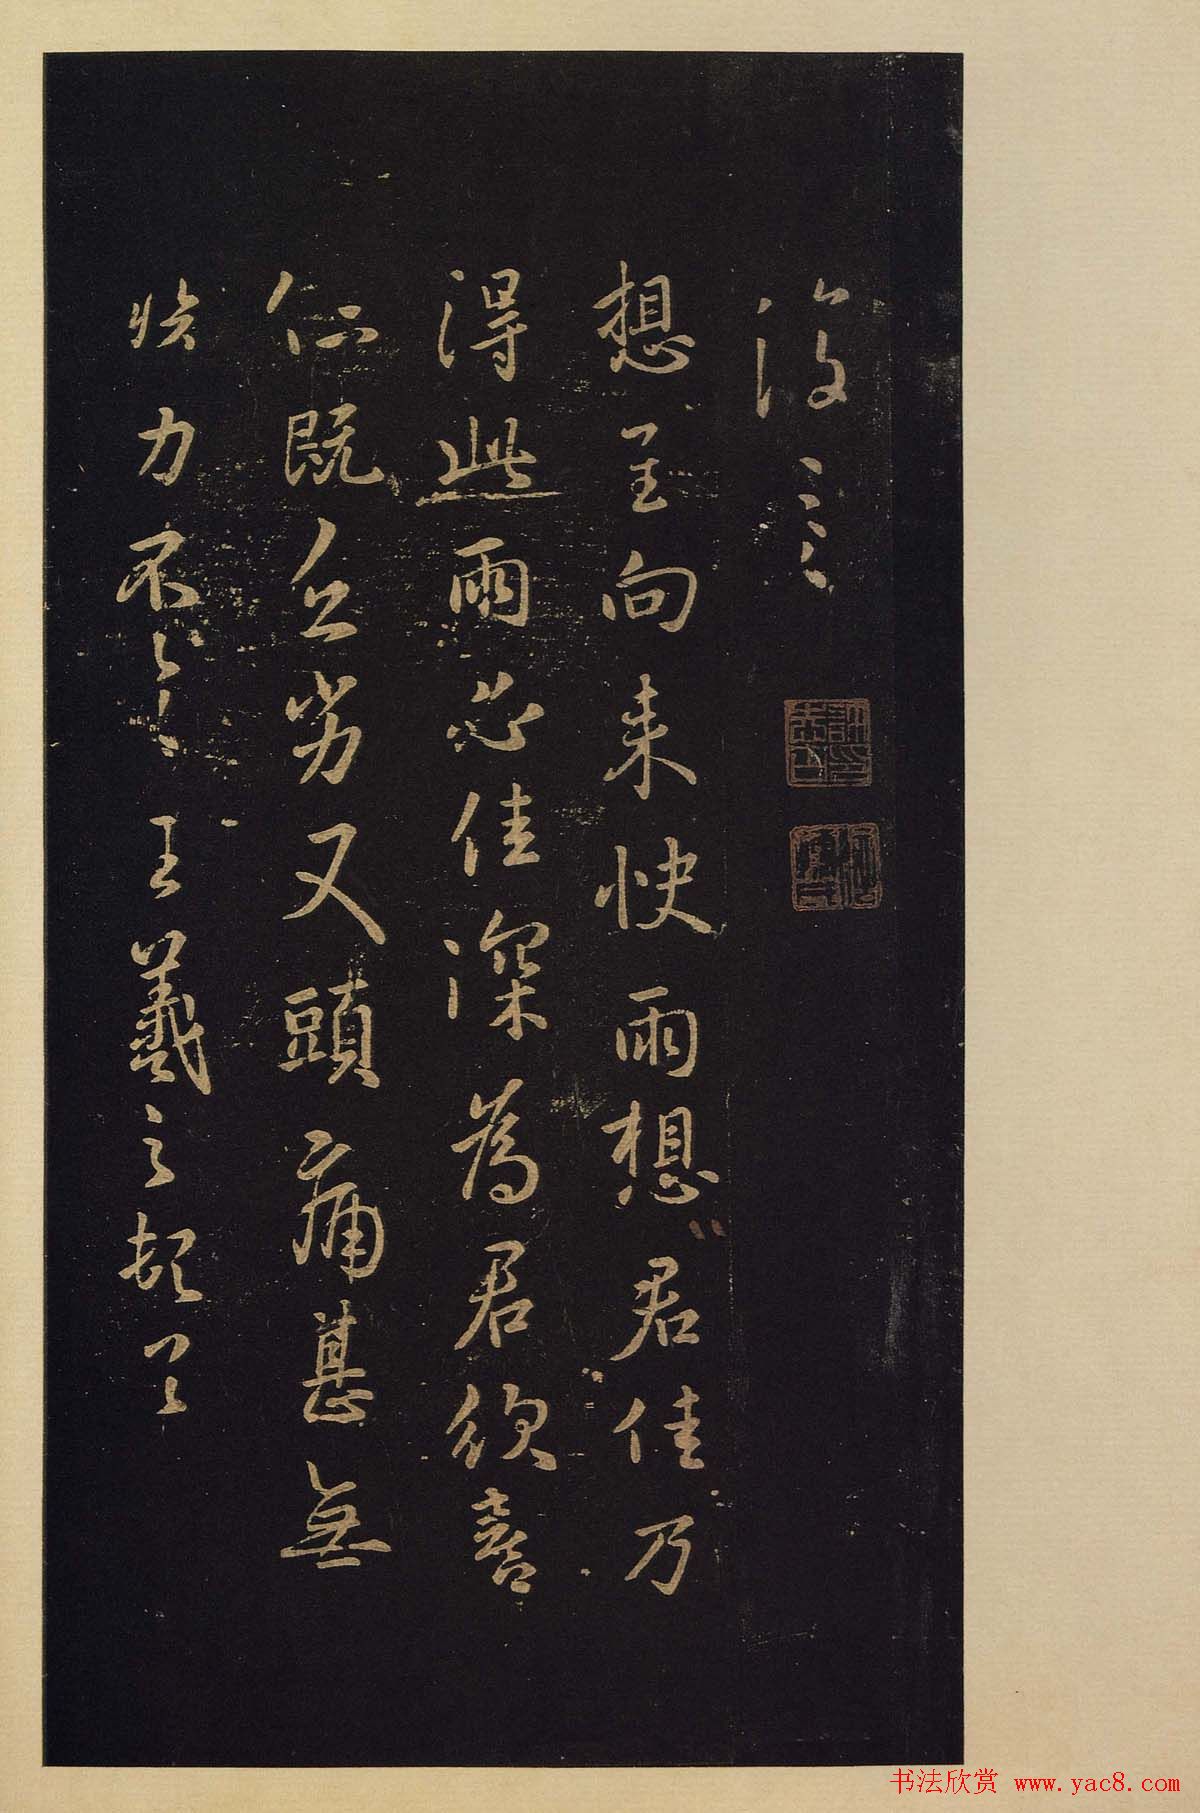 想至向来快雨想君佳乃
得此雨必佳深為君欣喜
仁既乏劣又頭痛甚無
力不一一王羲之頓首
书法欣赏 www.yac8.com